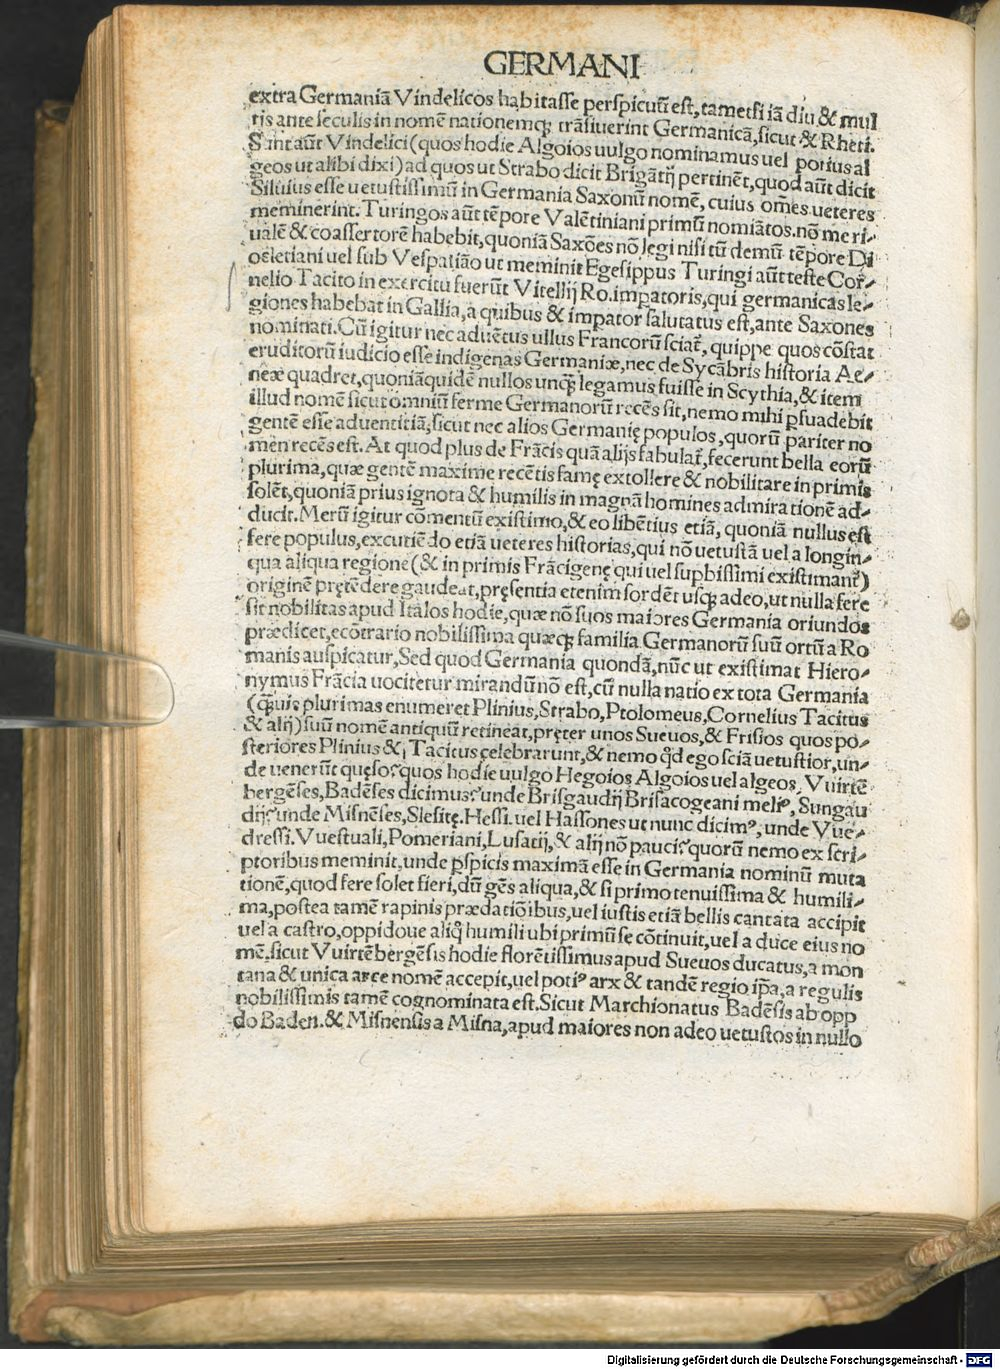 GERMANI
extra Germaniā Vindelicos habitasse perspicuū est, tametsi iā diu & mul
tis ante seculis in nomē nationemq; trāsiuerint Germanicā, sicut & Rheti.
Sunt aūt Vindelici (quos hodie Algoios uulgo nominamus uel potius al
geos ut alibi dixi) ad quos ut Strabo dicit Brigātij pertinēt, quod aūt dicit
Siluius esse uetustissimū in Germania Saxonū nomē, cuius oēs ueteres
meminerint. Turingos aūt tēpore Valētiniani primū nomīatos. nō me ri-
ualē & coassertorē habebit, quoniā Saxōes nō legi nisi tū demū tēpore Di
ocletiani uel sub Vespatiāo ut meminit Egesippus Turingi aūt teste Cor-
nelio Tacito in exercitu fuerūt Vitellij Ro. impatoris, qui germanicas le-
giones habebat in Gallia, a quibus & impator salutatus est, ante Saxones
nominati. Cū igitur nec aduētus ullus Francorū sciat̄, quippe quos cōstat
eruditorū iudicio esse indigenas Germaniæ, nec de Sycābris historia Ae-
neæ quadret, quoniāquidē nullos unq̄ legamus fuisse in Scythia, & item
illud nomē sicut omniū ferme Germanorū recēs sit, nemo mihi psuadebit
gentē esse aduentitiā, sicut nec alios Germanię populos, quorū pariter no
men recēs est. At quod plus de Frācis quā alijs fabulat̄, fecerunt bella eorū
plurima, quæ gentē maxime recētis famę extollere & nobilitare in primis
solēt, quoniā prius ignota & humilis in magnā homines admirationē ad-
ducit. Merū igitur cōmentū existimo, & eo libētius etiā, quoniā nullus est
fere populus, excutiēdo etiā ueteres historias, qui nō uetustā uel a longin-
qua aliqua regione (& in primis Frācigenę qui uel supbissimi existimant̄)
originē prętēdere gaudeat, pręsentia etenim sordēt usq; adeo, ut nulla fere
sit nobilitas apud Italos hodie, quæ nō suos maiores Germania oriundos
prædicet, ecōtrario nobilissima quæq; familia Germanorū suū ortū a Ro
manis auspicatur, Sed quod Germania quondā, nūc ut existimat Hiero-
nymus Frācia uocitetur mirandū nō est, cū nulla natio ex tota Germania
(q̄uis plurimas enumeret Plinius, Strabo, Ptolomeus, Cornelius Tacitus
& alij) suū nomē antiquū retineat, pręter unos Sueuos, & Frisios quos po-
steriores Plinius & Tacitus celebrarunt, & nemo qd ego sciā uetustior, un-
de uenerūt quęso? quos hodie uulgo Hegoios Algoios uel algeos, Vuirtē
bergēses, Badēses dicimus? unde Brisgaudrij Brisacogeani meliꝰ, Sungau
drij? unde Misnēses, Slesitę. Hessi. uel Hassones ut nunc dicimꝰ, unde Vue-
dressi. Vuestuali, Pomeriani, Lusatij, & alij nō pauci? quorū nemo ex scri-
ptoribus meminit, unde pspicis maximā esse in Germania nominū muta
tionē, quod fere solet fieri, dū gēs aliqua, & si primo tenuissima & humili-
ma, postea tamē rapinis prædatiōibus, uel iustis etiā bellis cantata accipit
uel a castro, oppidoue aliq̊ humili ubi primū se cōtinuit, uel a duce eius no
mē, sicut Vuirtēbergēsis hodie florētissimus apud Sueuos ducatus, a mon
tana & unica arce nomē accepit, uel potiꝰ arx & tandē regio ipa, a regulis
nobilissimis tamē cognominata est. Sicut Marchionatus Badēsis ab opp
do Baden. & Misnensis a Misna, apud maiores non adeo uetustos in nullo
Digitalisierung gefördert durch die Deutsche Forschungsgemeinschaft - DFG